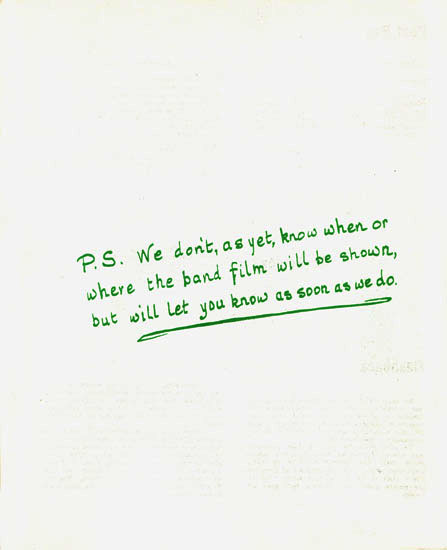 P.S. We don't, as yet, know when or
where the band film will be shown,
but will let you know as soon as we do.